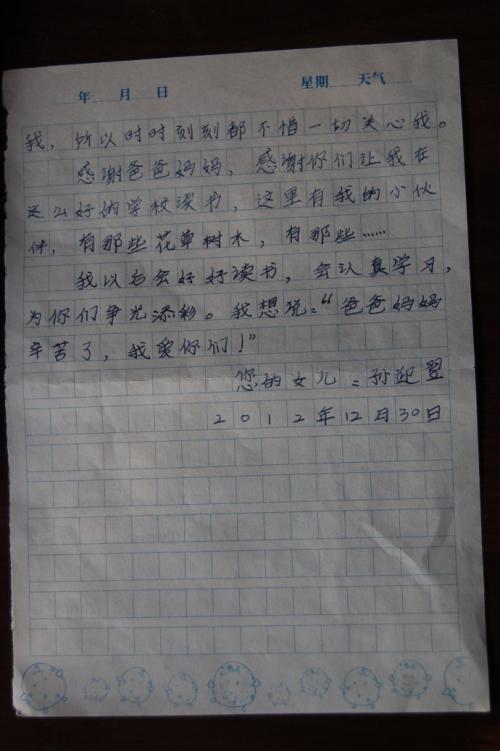 年 月 日 星期 天气
我，所以时时刻刻都不惜一切关心我。
感谢爸爸妈妈，感谢你们让我在
这么好的学校读书，这里有我的小伙
伴，有那些花草树木，有那些……
我以后会好好读书，会认真学习，
为你们争光添彩。我想说：“爸爸妈妈
辛苦了，我爱你们！”
您的女儿：孙迎翌
2012年12月30日